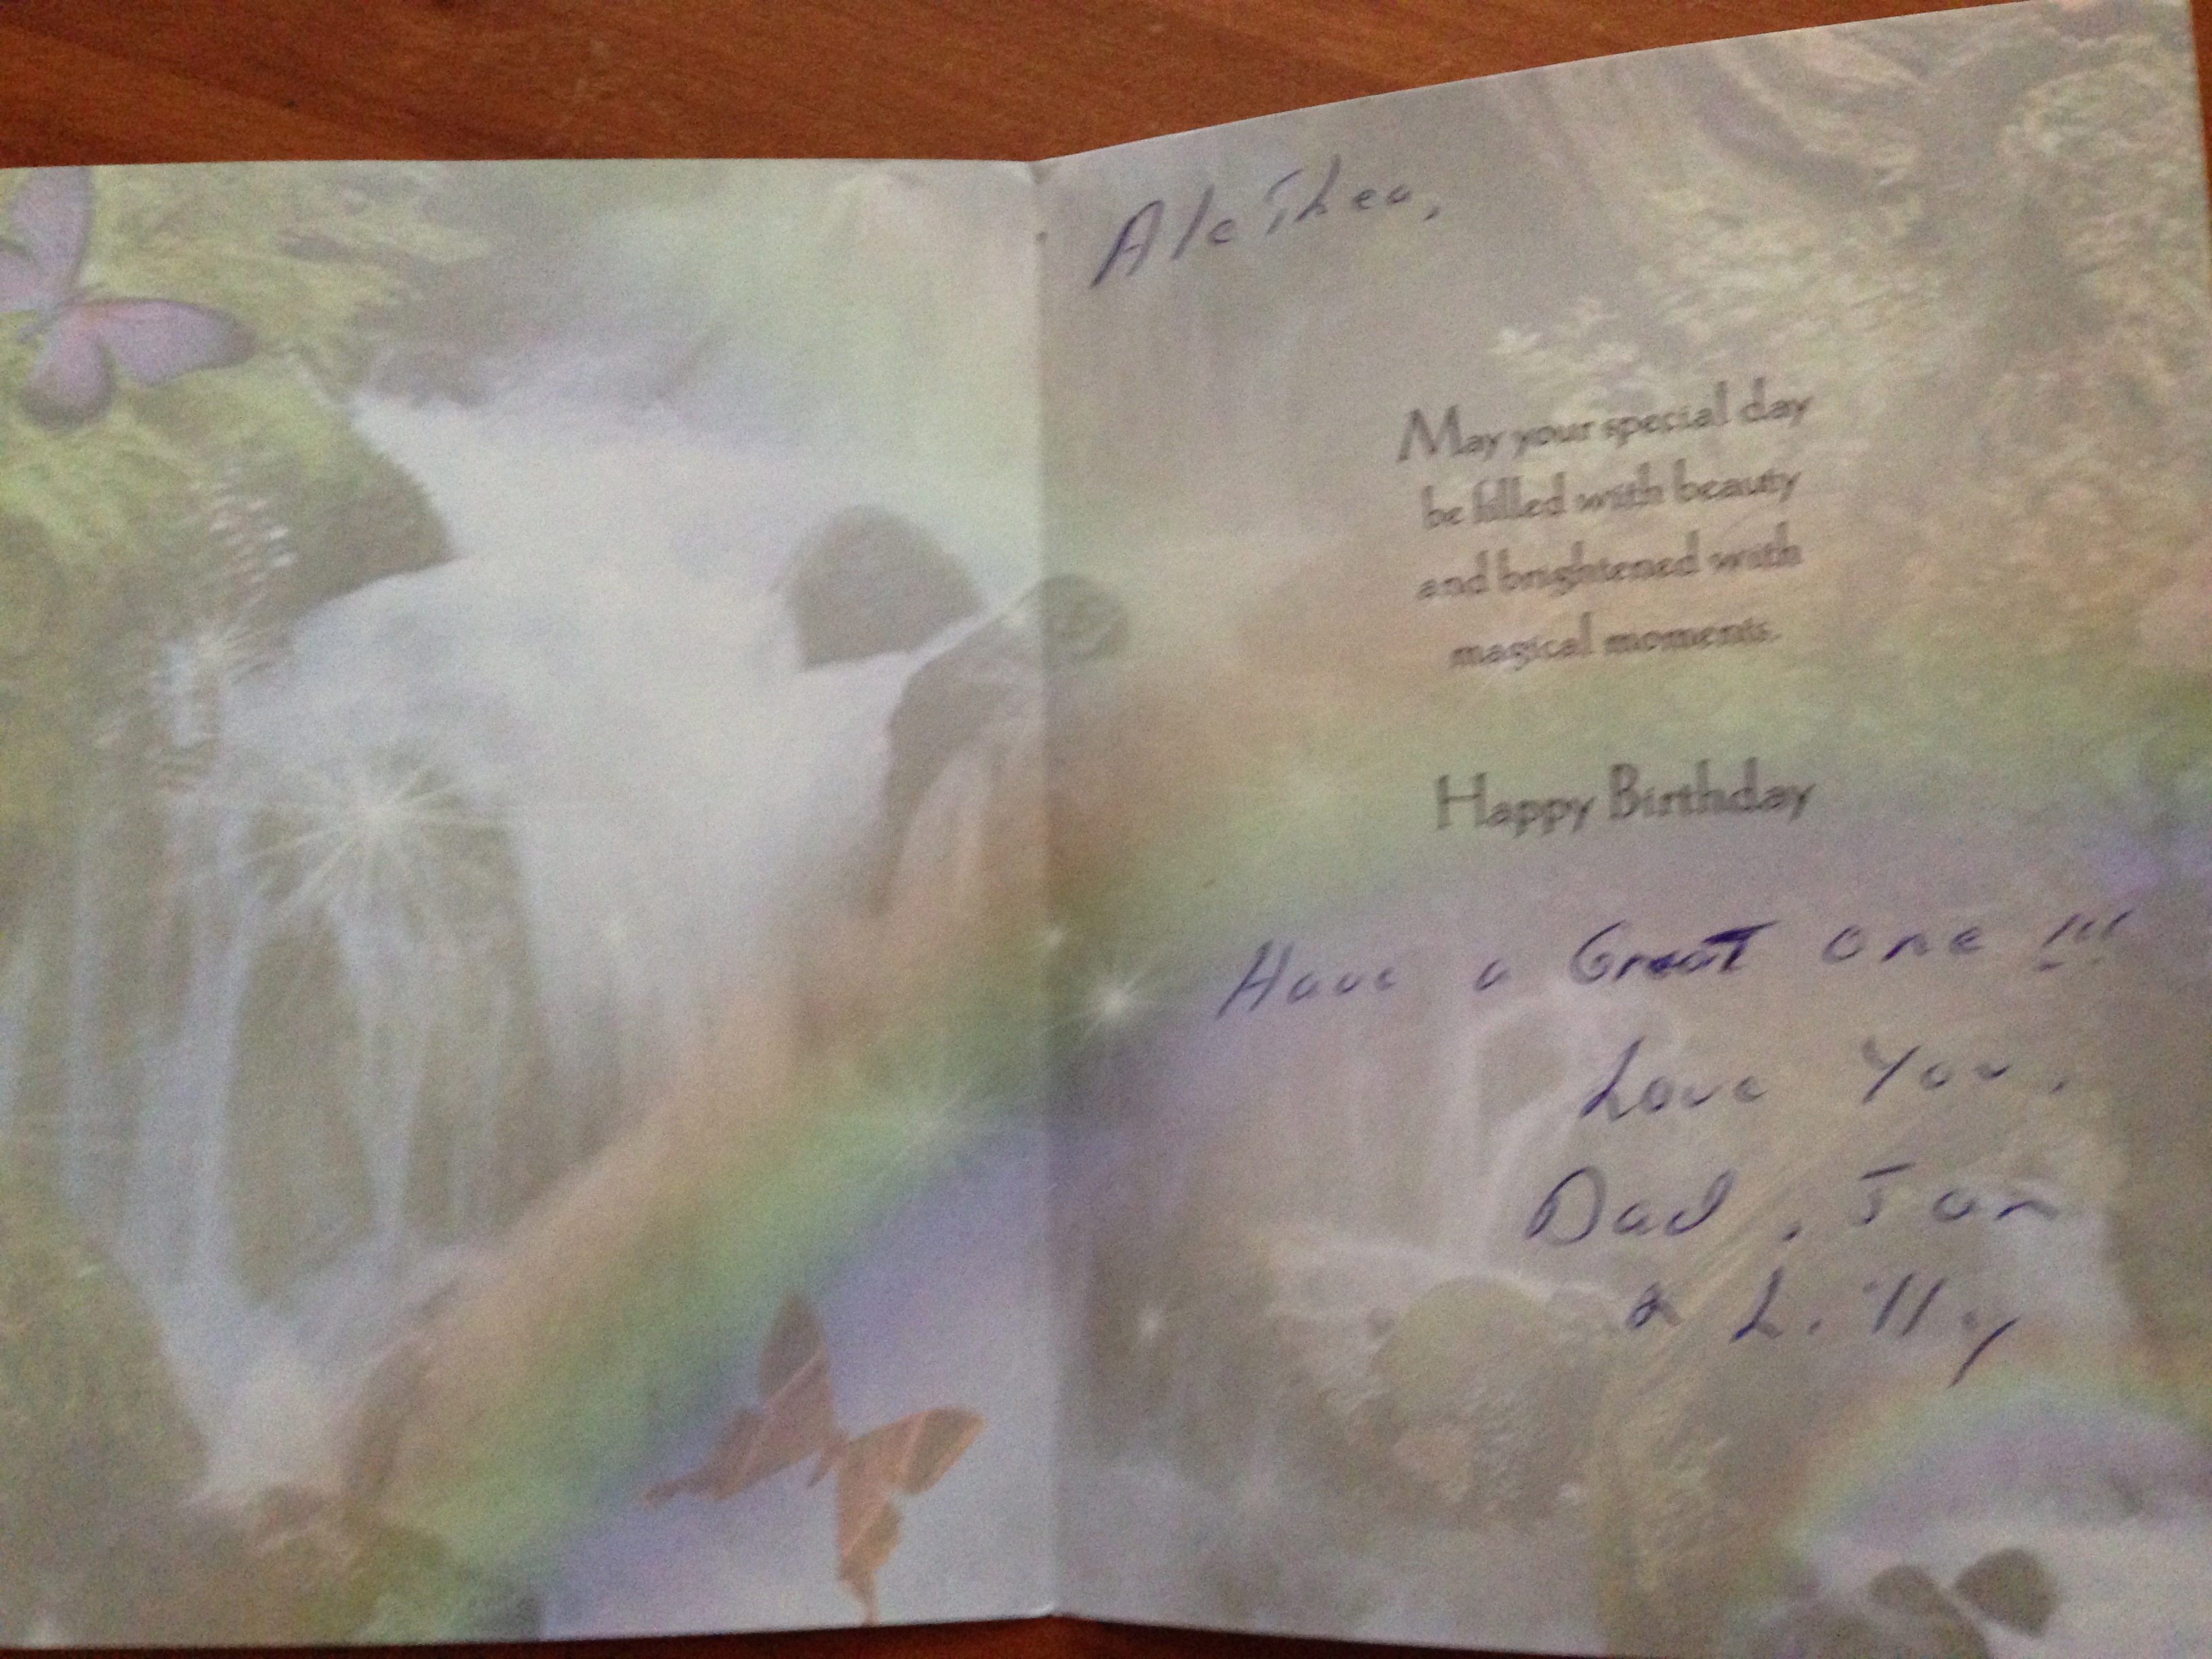 Alethea,
May your special day
be filled with beauty
and brightened with
magical moments.
Happy Birthday
Have a Great one !!!
Love You,
Dad, Jan
& Lilly